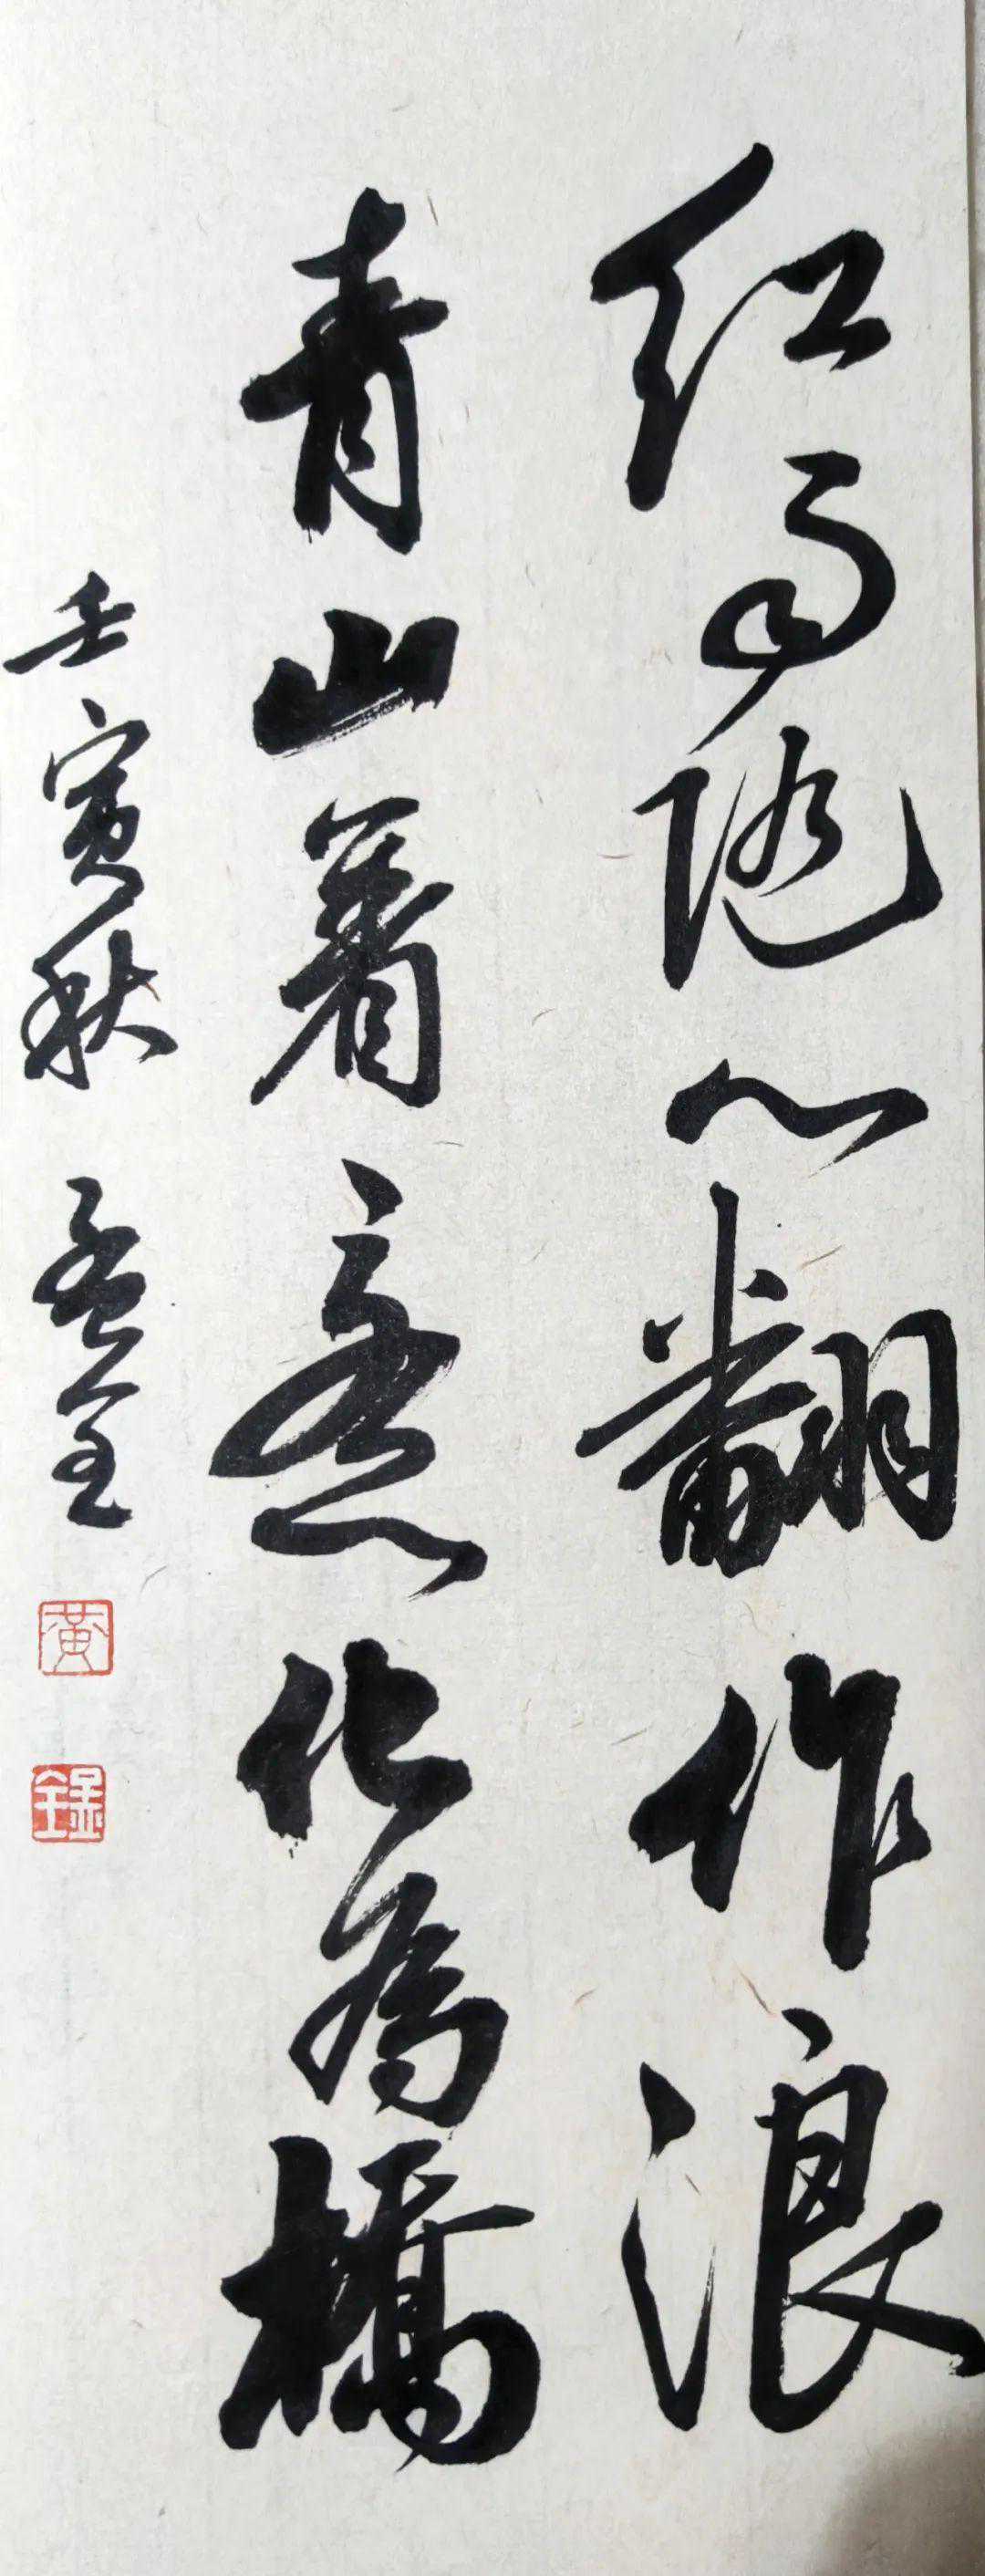 红雨随心翻作浪
青山着意化为橋
壬寅秋 孟全
黄
録